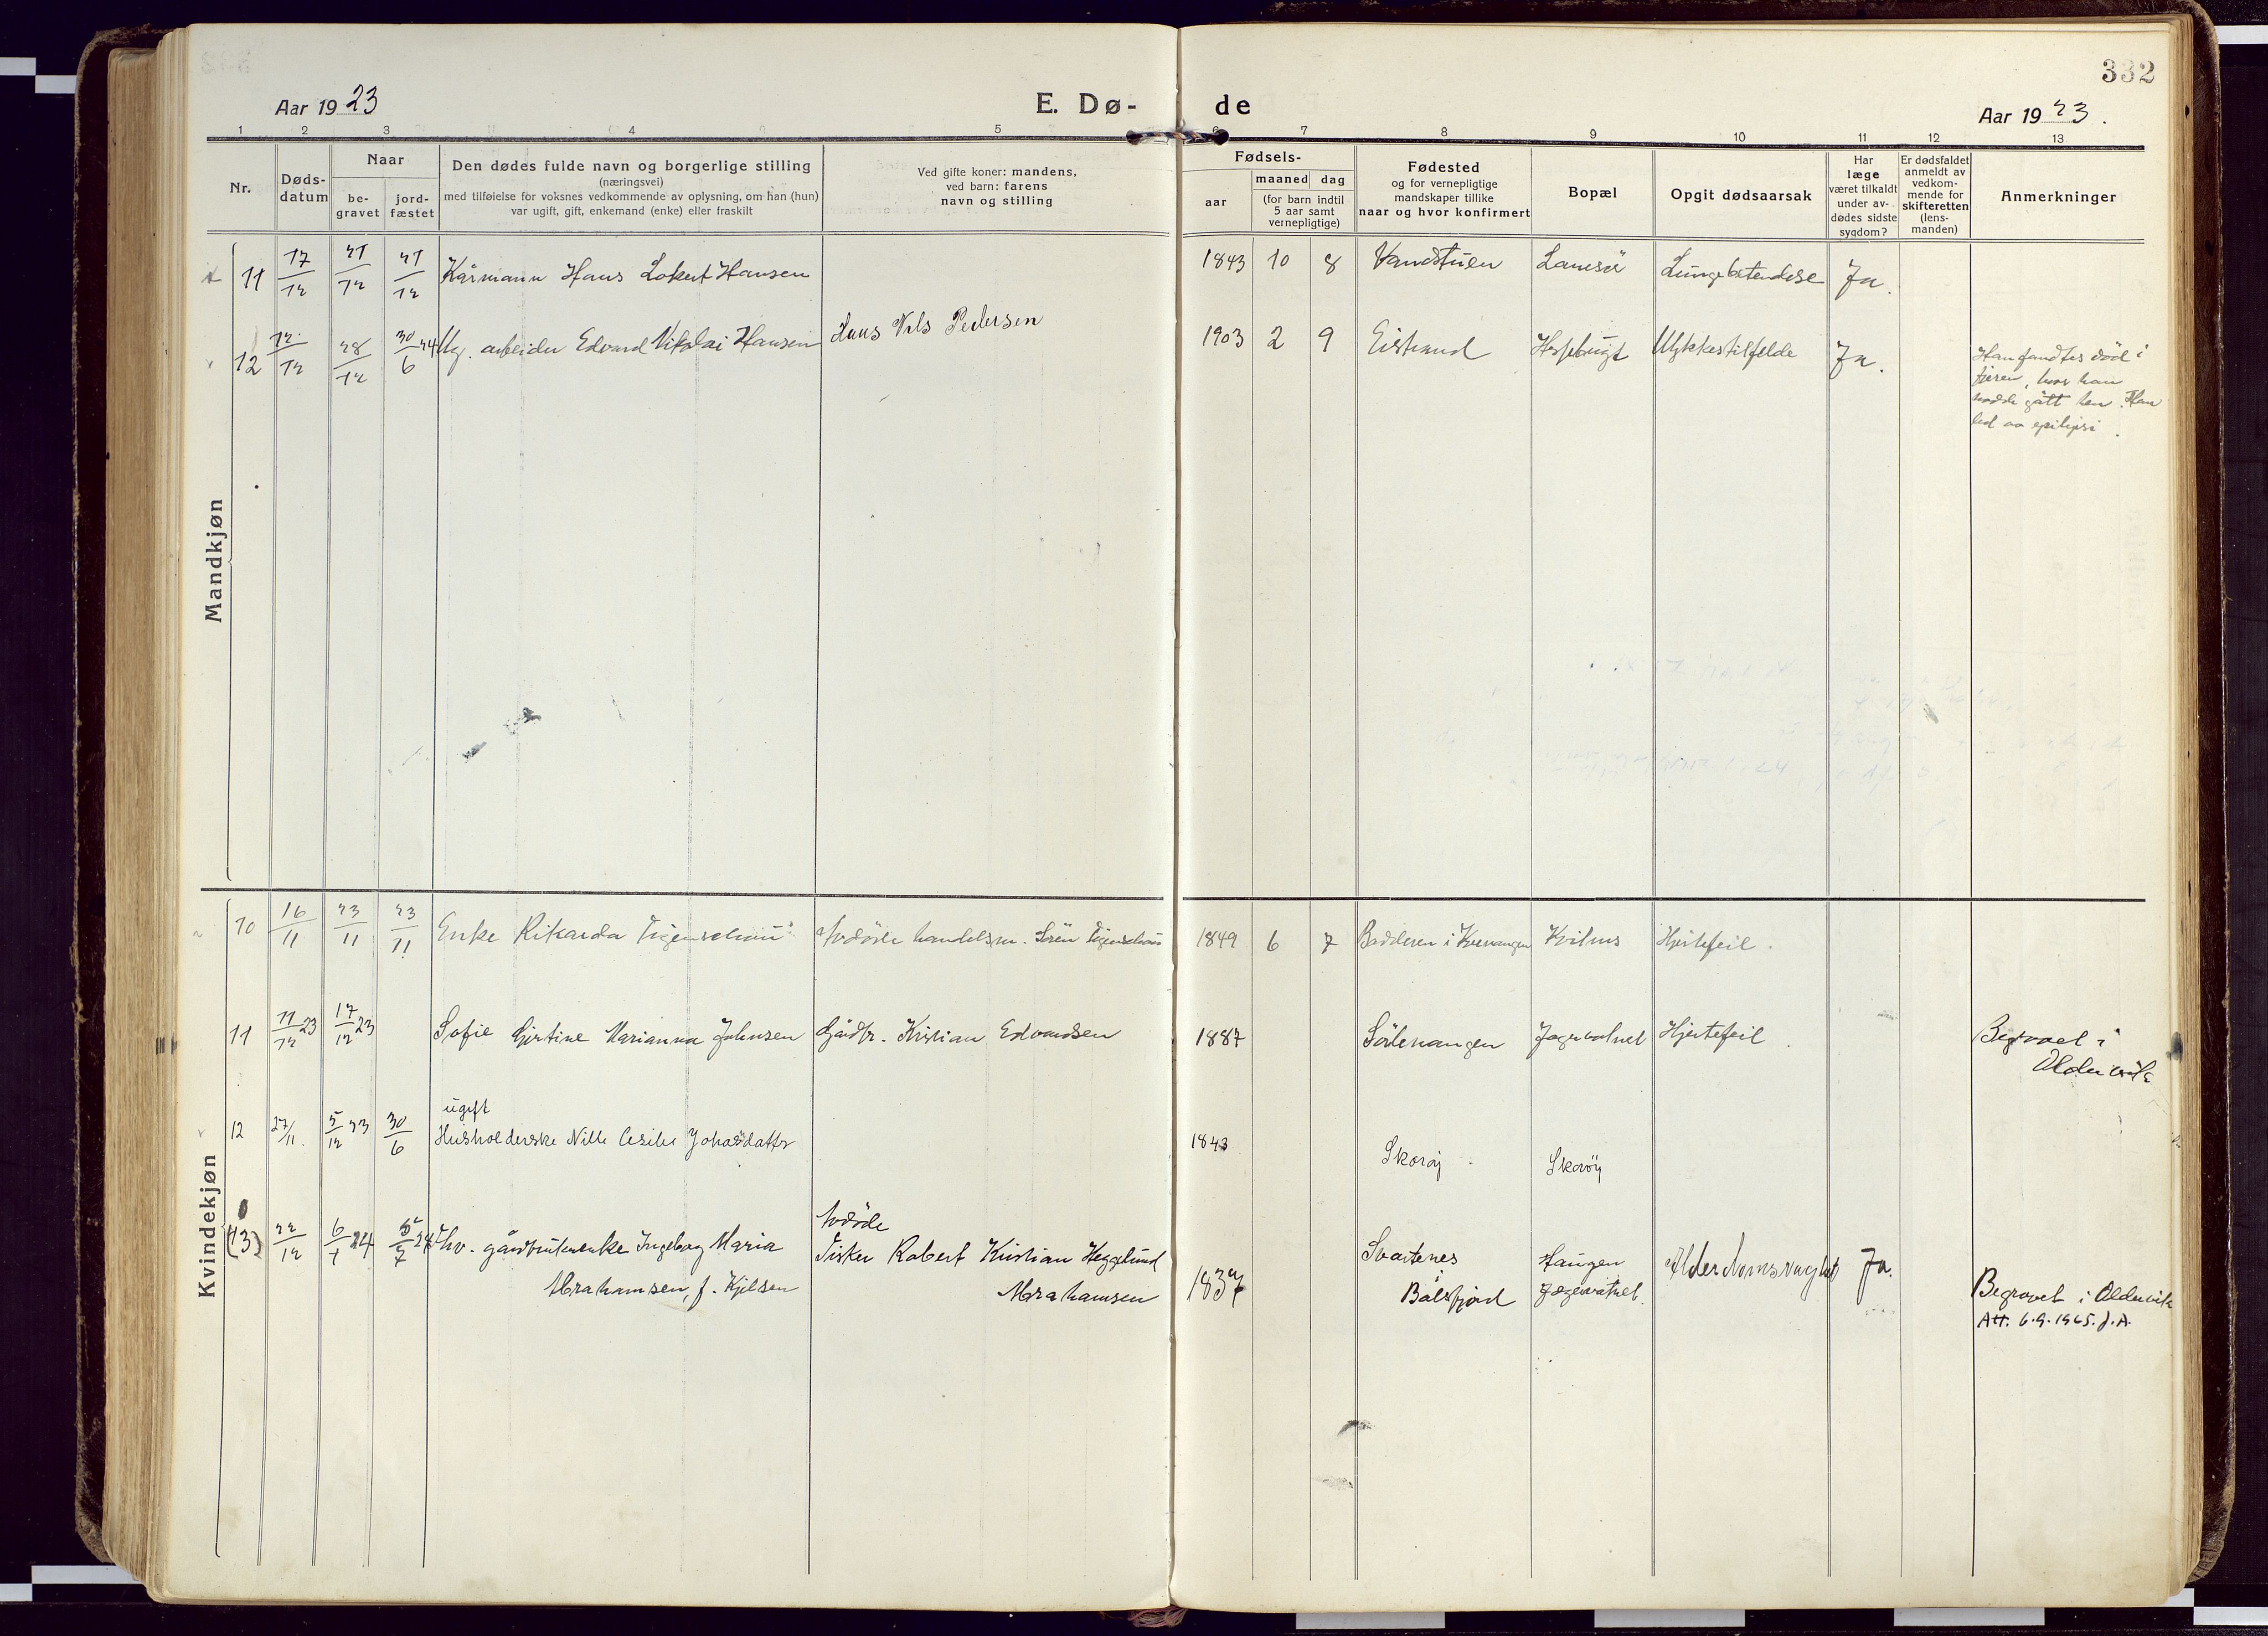 332
Aar 1923
E. Dø-
de
Aar 1923.
1 2 3 4 5 6 7 8 9 10 11 12 13
Nr.
Døds-
datum
Naar
be-
gravet
jord-
fæstet
Den dødes fulde navn og borgerlige stilling
(næringsvei)
med tilføielse for voksnes vedkommende av oplysning, om han (hun)
var ugift, gift, enkemand (enke) eller fraskilt
Ved gifte koner: mandens,
ved barn: farens
navn og stilling
Fødsels-
aar
maaned dag
(for barn indtil
5 aar samt
vernepligtige)
Fødested
og for vernepligtige
mandskaper tillike
naar og hvor konfirmert
Bopæl
Opgit dødsaarsak
Har
læge
været tilkaldt
under av-
dødes sidste
sygdom?
Er dødsfaldet
anmeldt av
vedkom-
mende for
skifteretten
(lens-
manden)
Anmerkninger
Mandkjøn
11 17/12 21/12 21/12 Kårmann Hans Lokert Hansen 1843 10 8 Vandstuen Lungebetendelse Ja.
12 12/12 28/12 30/6 24 Ug. arbeider Edvard Nikolai Hansen Hans Nils Pedersen 1903 2 9 Eistrand Ulykkestilfelde Ja.
Han fandtes död i
fjæren, hvor han
hadde gått hen. Han
led av epilepsi.
Kvindekjøn
10 16/11 23/11 23/11 Enke Rikarda avdöde handelsm. Sören 1849 6 7 Badderen i Kvenangen Hjertefeil.
11 11/12 23 17/12 23 Sofie Gjertine Marianna Johnsen Gårdbr. Kristian Edvardsen 1887 Sörlenangen Jægervatnet Hjertefeil.
Begravet i
Oldervik
ugift
12 27/11. 5/12 23 30/6 Husholderske Nille Cecilie Johasdattr 1843
Skoröy Skoröy
avdöde
(13) 22/12 6/1 24 5/7 24 fhv. gårdbrukerenke Ingeborg Maria Fisker Robert Kristian Heggelund Svartenes Haugen Alderdomssvaghet Ja.
Abrahamsen, f. Kjilsen Abrahamsen 1837 Balsfjord Jægervatnet.
Begravet i Oldervik
Att. 6.9.1965. J.A.